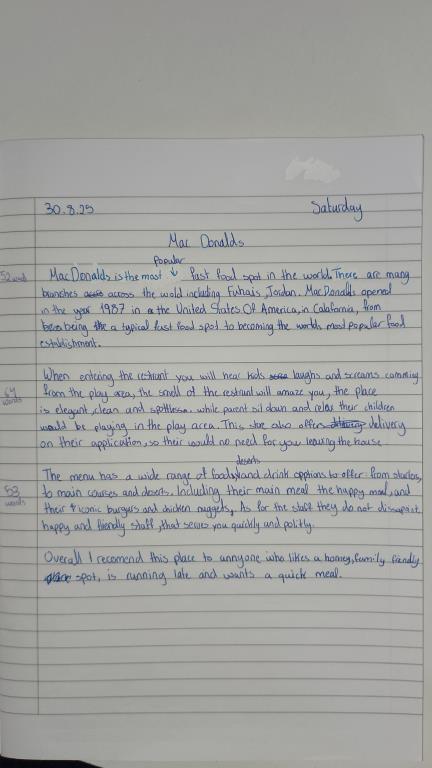 30.8.25 Saturday
Mac Donalds
Popular
52 word MacDonalds is the most ↓ fast food spot in the world. There are many
branches across the wold including Fuhais, Jordan. MacDonalds opened
in the year 1987 in the United States Of America, in Calafornia, from
being a typical fast food spot to becoming the worlds most popular food
establishment.
When entering the restrunt you will hear kids laughs and screams comming
64 words from the play area, the smell of the restrunt will amaze you, the place
is elegant, clean and spotless. while parent sit down and relax their children
would be playing in the play area. This store also offers delivery
on their application, so their would no need for you leaving the house
deserts
The menu has a wide range of foods, and drink opptions to offer. from starters,
53 words to main courses and deserts. Including their main meal the happy meal, and
their iconic burgers and chicken nuggets, As for the staff they do not dissapoint,
happy and friendly staff, that serves you quickly and politly.
Overall I recomend this place to annyone who likes a homey, family friendly
spot, is running late and wants a quick meal.